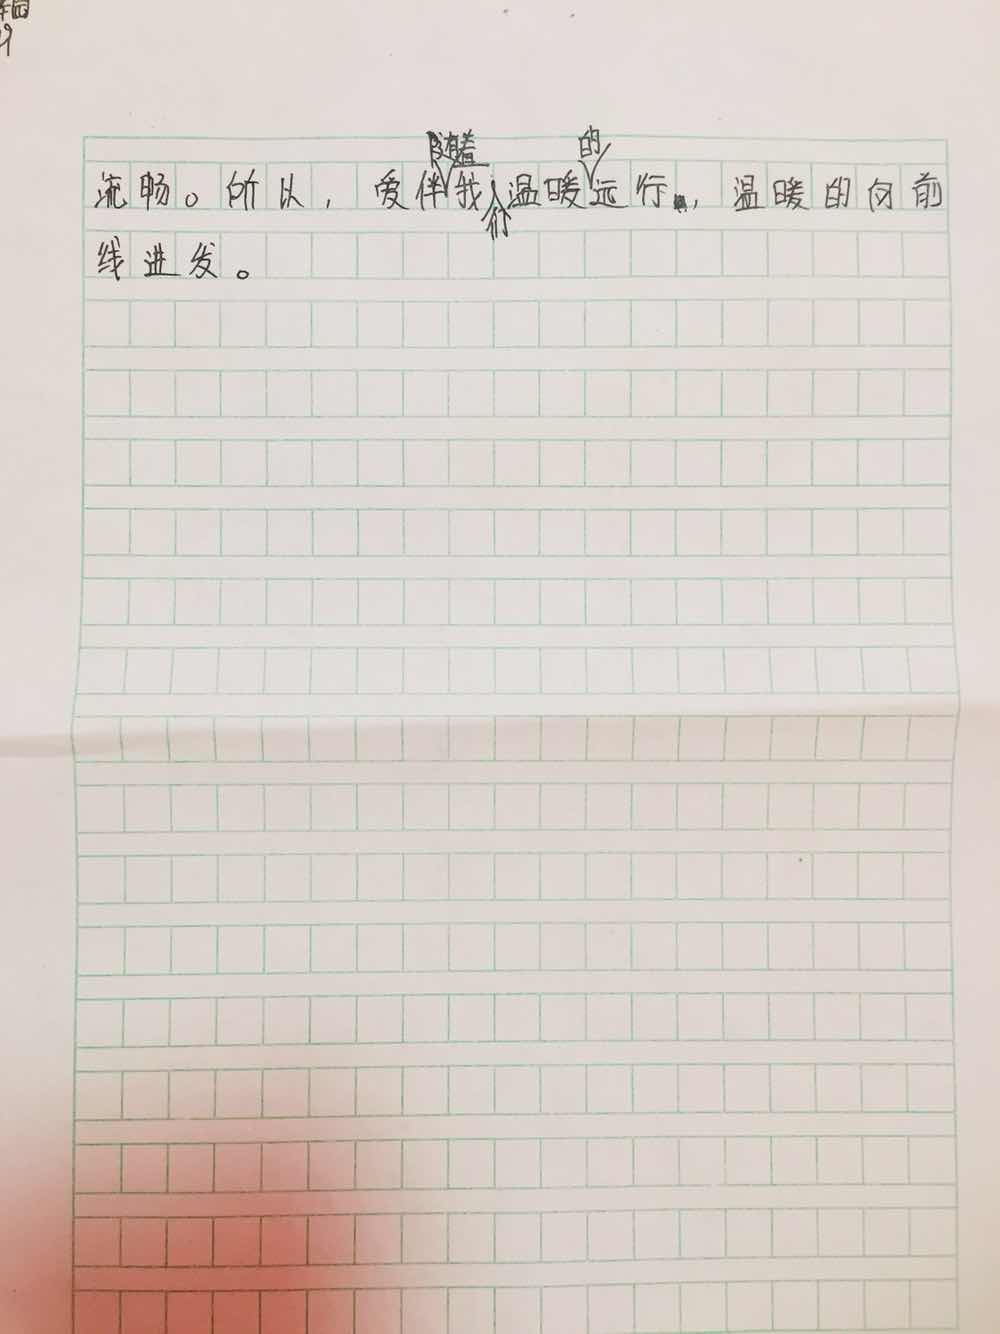 流畅。所以，爱伴随着我行，温暖的远行，温暖的向前
线进发。